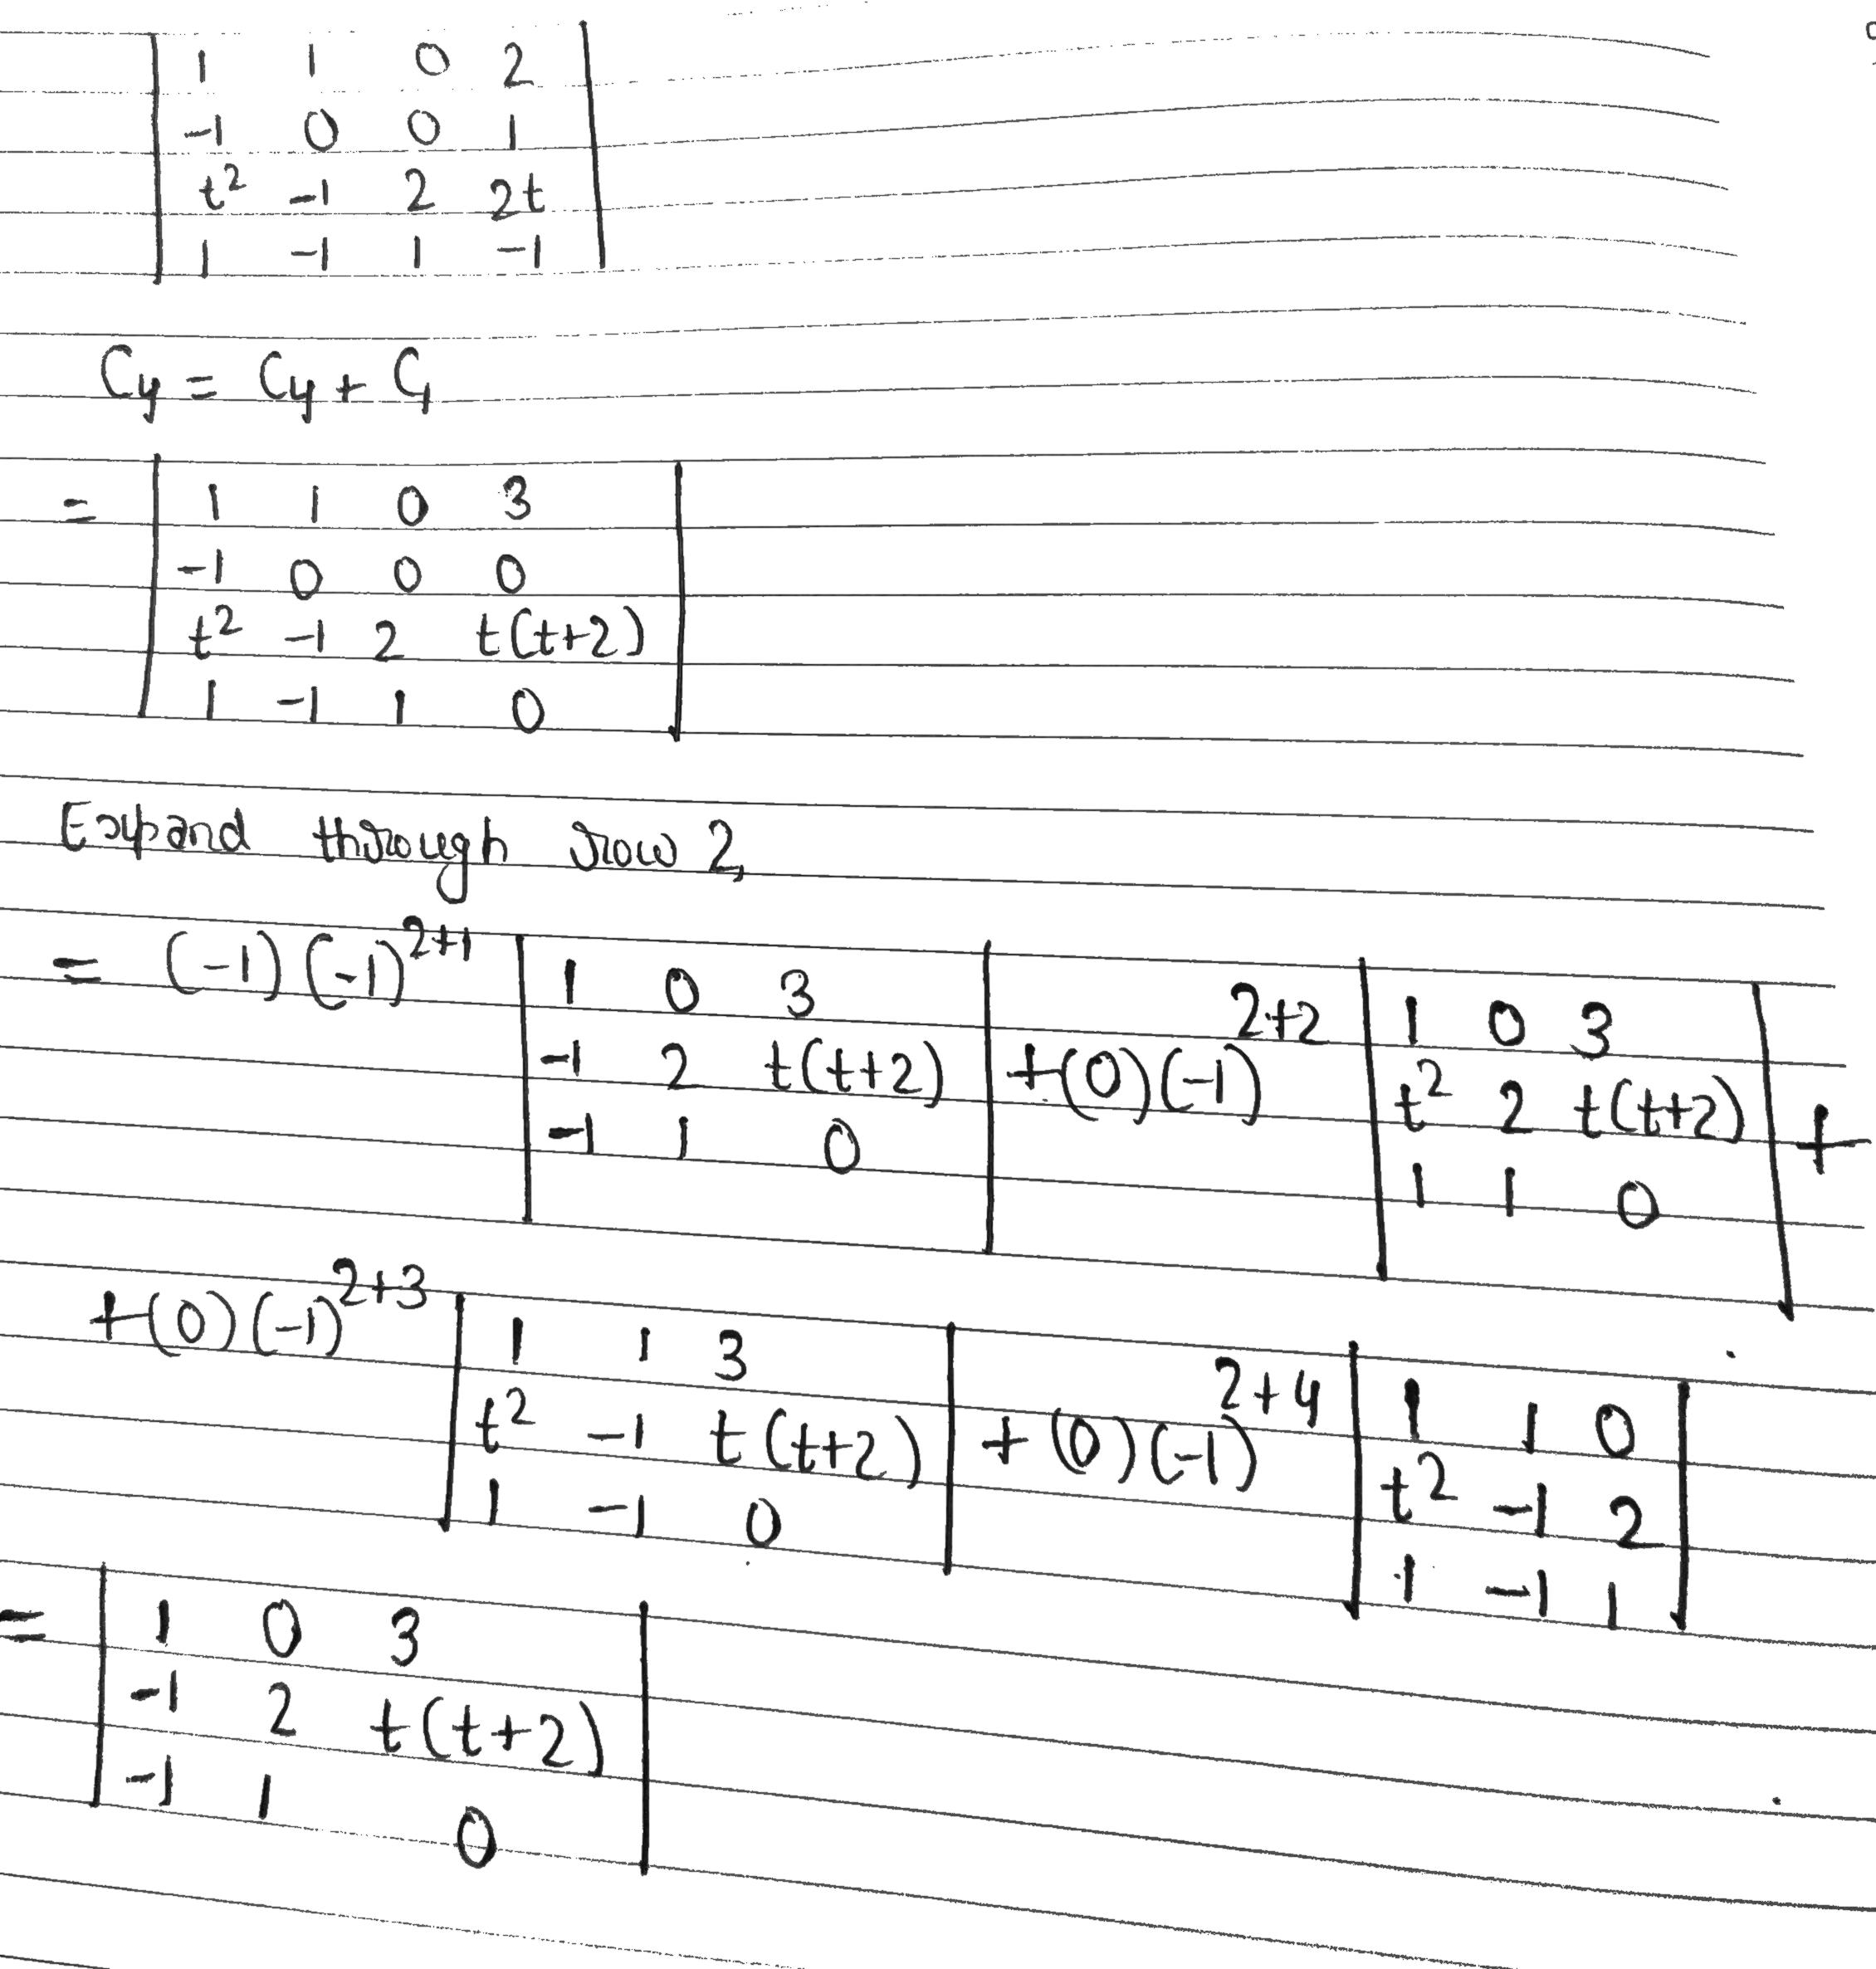 | 1 1 0 2 |
| -1 0 0 1 |
| t² -1 2 2t |
| 1 -1 1 -1 |
C₄ = C₄ + C₁
= | 1 1 0 3 |
| -1 0 0 0 |
| t² -1 2 t(t+2) |
| 1 -1 1 0 |
Expand through row 2,
= (-1)(-1)²⁺¹ | 1 0 3 | +(0)(-1)²⁺² | 1 0 3 | +
| -1 2 t(t+2) | | t² 2 t(t+2) |
| -1 1 0 | | 1 1 0 |
+(0)(-1)²⁺³ | 1 1 3 | +(0)(-1)²⁺⁴ | 1 1 0 |
| t² -1 t(t+2) | | t² -1 2 |
| 1 -1 0 | | 1 -1 1 |
= | 1 0 3 |
| -1 2 t(t+2) |
| -1 1 0 |